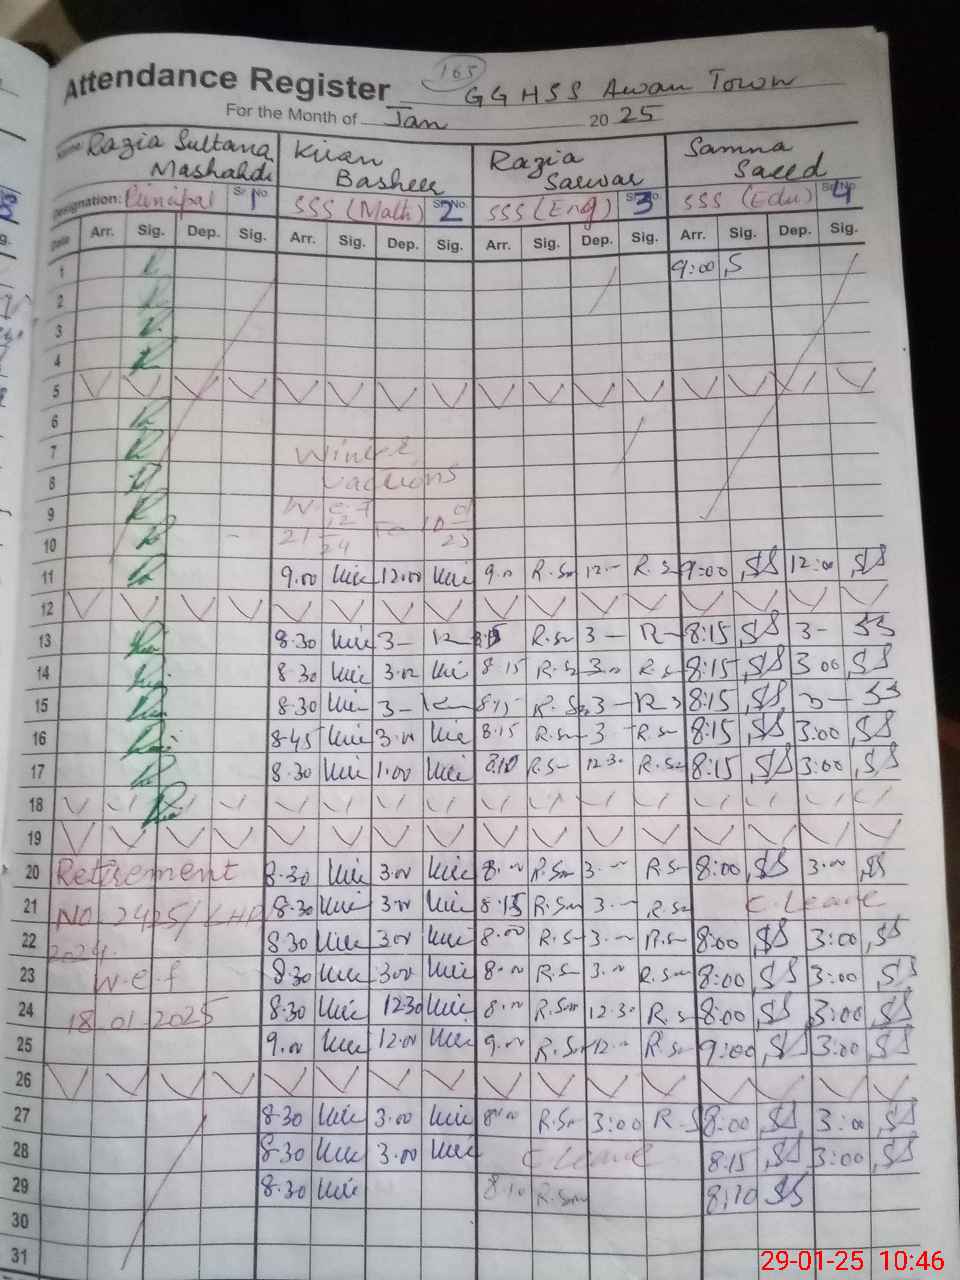 165
Attendance Register GGHSS Awan Town
For the Month of Jan 2025
Name: Razia Sultana Mashahdi Kiran Basheer Razia Sarwar Samna Saeed
Designation: Principal Sr. No. 1 SSS (Math) Sr. No. 2 SSS (Eng) Sr. No. 3 SSS (Edu) Sr. No. 4
Date Arr. Sig. Dep. Sig. Arr. Sig. Dep. Sig. Arr. Sig. Dep. Sig. Arr. Sig. Dep. Sig.
1 9:00 S
2
3
4
5
6
7 Winter
8 Vactions
9 W.e.f
10 21 12 24 To 10 01 25
11 9.00 12.00 9.00 R.Sm 12 — R.S 9:00 SS 12:00 SS
12
13 8.30 3 — 8:15 R.Sm 3 — R — 8:15 SS 3 — SS
14 8.30 3.00 8.15 R.S 3.00 R.S 8:15 SS 3:00 SS
15 8.30 3 — 8:15 R.S 3 — R.S 8:15 SS 3 — SS
16 8.45 3.00 8.15 R.Sm 3 R.Sm 8:15 SS 3:00 SS
17 8.30 1.00 8.10 R.Sm 12.30 R.Sm 8:15 SS 3:00 SS
18
19
20 Retirement 8.30 3.00 8.00 R.Sm 3. — R.Sm 8:00 SS 3.00 SS
21 NO. 2425/LHR 8.30 3.00 8.15 R.Sm 3. — R.Sm C.Leave
22 2024. 8.30 3.00 8.00 R.Sm 3. — R.Sm 8:00 SS 3:00 SS
23 w.e.f 8.30 3.00 8.00 R.Sm 3.00 R.Sm 8:00 SS 3:00 SS
24 18 01 2025 8.30 12.30 8.00 R.Sm 12.30 R.S 8:00 SS 3:00 SS
25 9.00 12.00 9.00 R.Sm 12. — R.Sm 9:00 SS 3:00 SS
26
27 8.30 3.00 8.00 R.Sm 3:00 R.S 8:00 SS 3:00 SS
28 8.30 3.00 C.Leave 8:15 SS 3:00 SS
29 8.30 8.10 R.Sm 8:10 SS
30
31
29-01-25 10:46